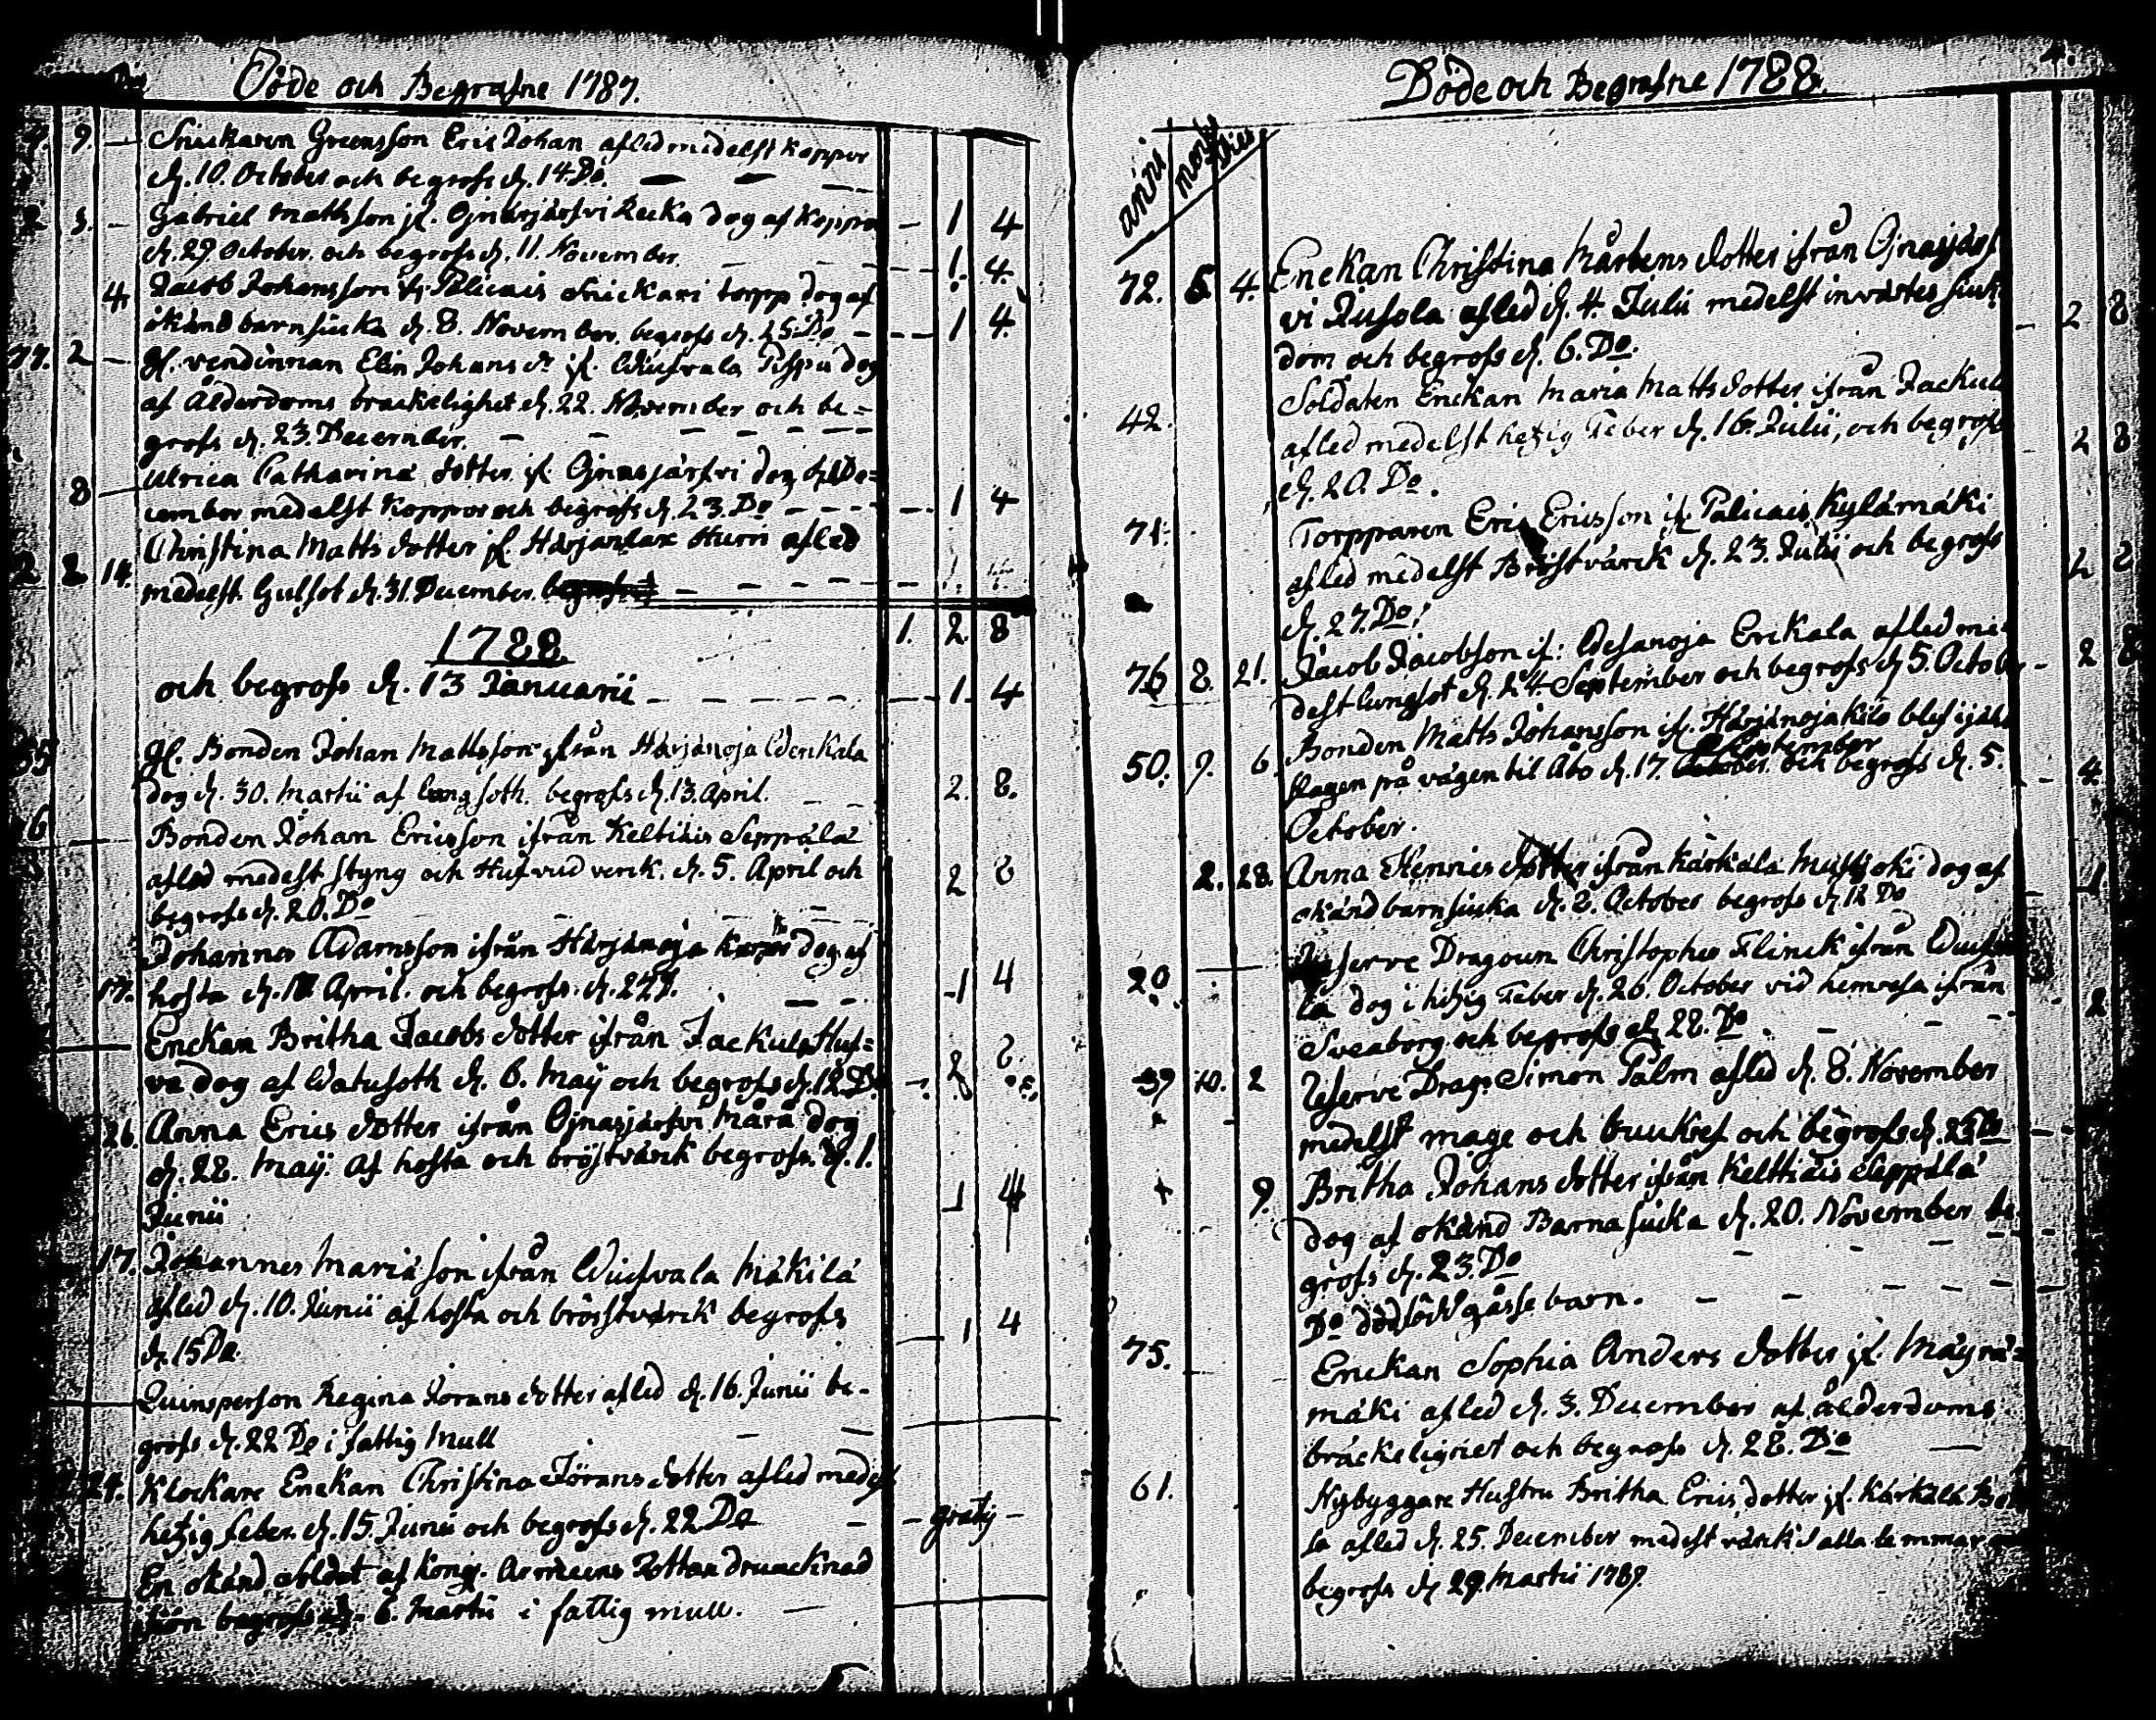 Döde och Begrafne 1787.
4. 9. — Snickaren Greensson Eric Johan afled medelst koppor
d. 10. October och begrofs d. 14 Do. — — —
2 3. — Gabriel Mathsson if. Ojnasjärfvi Recka dog af koppor — 1 4
d. 29 October. och begrofs d. 11. November. — — — 1. 4.
4. Jacob Johansson if. Palicais Snickari torpp dog af
okänd barnsiuka d. 8. November. begrofs d. 25. Do — — — 1 4.
77. 2 — gl. vendinnan Elin Johans dr if. Pispa dog
af Ålderdoms brackelighet d. 22. November och be=
grofs d. 23. December. — — — — — —
8 — Ulrica Catharina dotter if. Ojnasjärfvi dog De=
cember medelst koppor och begrofs d. 23. Do — — — — 1 4
Christina Matts dotter if. Harjanlax Hurri afled
2 2 14. medelst Gulsot d. 31. December. — — — — — 1. 4.
1788 1. 2. 8
och begrofs d. 13 Januarii — — — — — — 1. 4
35 gl. Bonden Johan Mattsson ifrån Härjänoja
dog d. 30. Martii af lungsoth. begrofs d. 13. April. — — 2. 8.
6 — Bonden Johan Ericsson ifrån Keltiäis Seppälä
afled medelst styng och Hufvud verk. d. 5. April och 2 8
begrofs d. 20. Do — — — —
Johannes Adamsson ifrån Härjänoja dog af
17. hosta d. April. och begrofs. d. — — 1 4
— Enckan Britha Jacobs dotter ifrån Jackula Huf=
va dog af Watusoth d. 6. Maÿ och begrofs d. 12. Do — 2 8
26. Anna Erics dotter ifrån Ojnasjärfvi Mårå dog
d. 28. Maÿ. af hosta och bröstvärck begrofs. d. 1.
Junii 1 4
17. Johannes Mariä son ifrån Wiusvala Mäkilä
afled d. 10. Junii af hosta och bröstvärck begrofs
d. 15 Do. — 1 4
Quinsperson Regina Jörans dotter afled d. 16. Junii be-
grofs d. 22 Do i fattig mull — —
24. Klockare Enckan Christina Jörans dotter afled medelst
hetzig feber. d. 15. Junii och begrofs d. 22 Do — — gratis —
En okänd soldat af Kongl. Armeens drucknad
6. Martii i fattig mull. —
Döde och Begrafne 1788.
anni mens dies
72. 5. 4. Enckan Christina Mårtens dotter ifrån Ojnasjärf
vi afled d. 4. Julii medelst invärtes siuk — 2 8
dom och begrofs d. 6. Do.
42. Soldaten Enckan Maria Matts dotter ifrån Jackula
afled medelst hetzig Feber d. 16. Julii, och begrofs — 2 8
d. 20. Do.
71. Torpparen Eric Ericsson if. Palicais Kylämäki
afled medelst Bröstvärck d. 23. Julii och begrofs 2 8
d. 27. Do.
76 8. 21. Jacob Jacobsson if: afled me
delst lungsot d. 24. September och begrofs d. 5. October — 2 8
50. 9. 6. Bonden Matts Johansson if. Härjänoja Kilo blef ijähl
slagen på vägen til Åbo d. 17. September och begrofs d. 5. — 4.
October.
2. 28. Anna Henrics dotter ifrån Kärkälä Mustjoki dog af — 1.
okänd barnsiuka d. 2. October begrofs d. 12 Do
20 — Reserve Dragoun Christopher Flinck ifrån
la dog i hitzig Feber d. 26. October vid hemresa ifrån 2
Sveaborg och begrofs d. 28. Do. — — —
39 10. 2 Reserve Drag. Simon Palm afled d. 8. November
medelst mage och och begrofs d. — —
9. Britha Johans dotter ifrån Kelttiäis Seppälä
dog af okänd Barnasiuka d. 20. November be
grofs d. 23. Do — — — —
Do dödföd gåsse barn. — — — — —
75. Enckan Sophia Anders dotter if. Mäyrä=
mäki afled d. 3. December af ålderdoms
bräckelighet och begrofs d. 28. Do —
61. Nybyggare Hustru Britha Erics dotter if. Kärkälä
la afled d. 25. December medelst värck i alla lemmar
begrofs d. 29. Martii 1789.